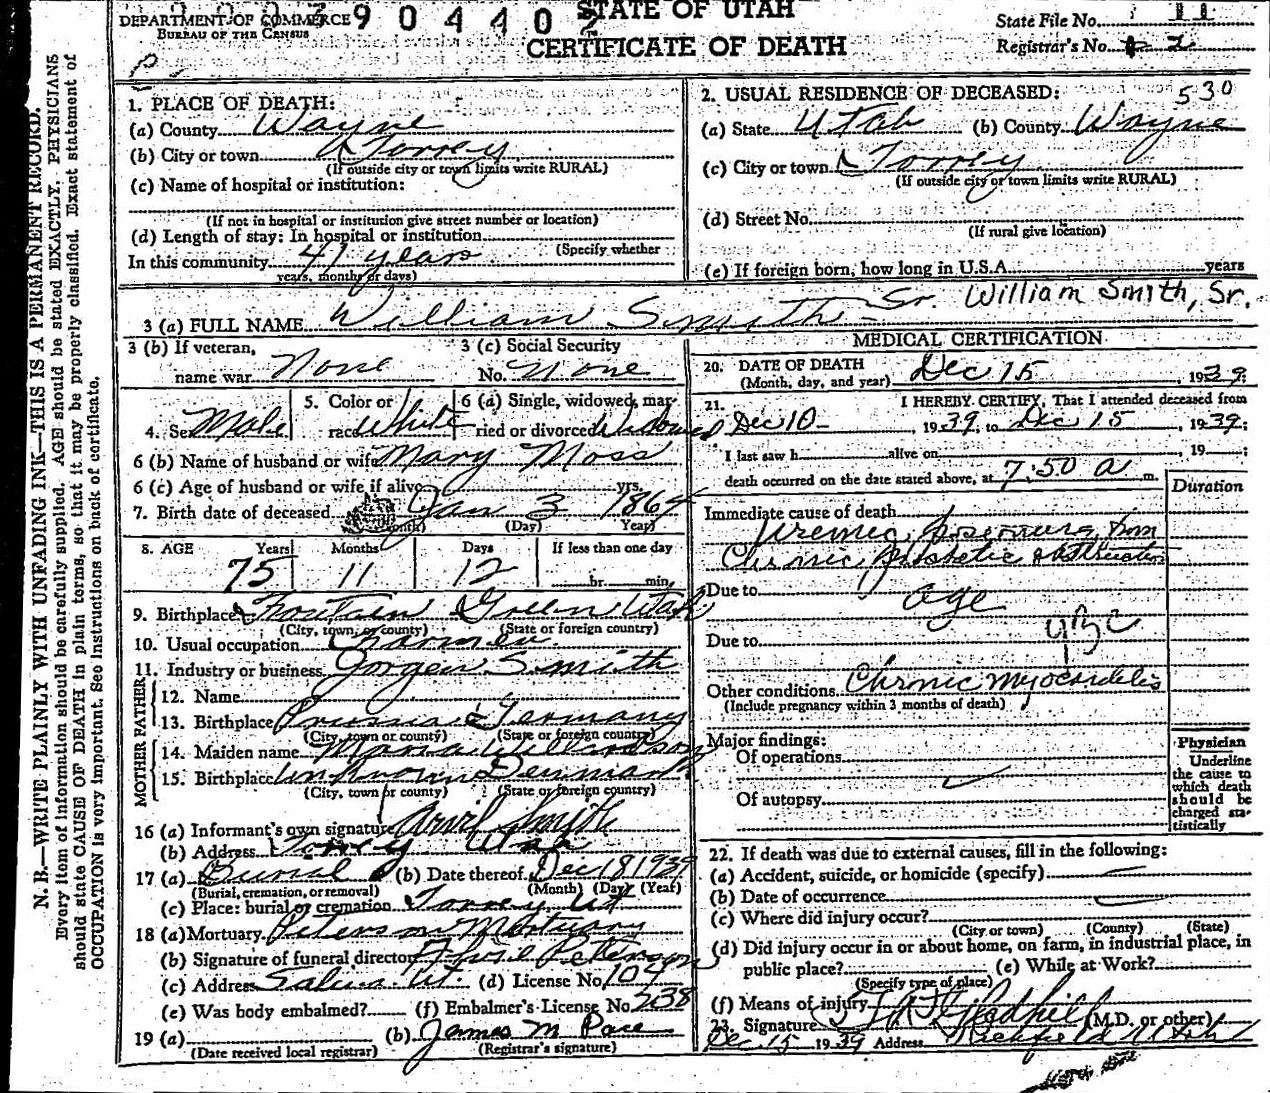 DEPARTMENT OF COMMERCE
BUREAU OF THE CENSUS
390440
STATE OF UTAH
CERTIFICATE OF DEATH
State File No. 11
Registrar's No. 2
N. B.—WRITE PLAINLY WITH UNFADING INK—THIS IS A PERMANENT RECORD.
Every item of information should be carefully supplied. AGE should be stated EXACTLY. PHYSICIANS
should state CAUSE OF DEATH in plain terms, so that it may be properly classified. Exact statement of
OCCUPATION is very important. See instructions on back of certificate.
1. PLACE OF DEATH:
(a) County Wayne
(b) City or town Torrey
(If outside city or town limits write RURAL)
(c) Name of hospital or institution:
(If not in hospital or institution give street number or location)
(d) Length of stay: In hospital or institution
(Specify whether
In this community 41 years
years, months or days)
2. USUAL RESIDENCE OF DECEASED: 530
(a) State Utah (b) County Wayne
(c) City or town Torrey
(If outside city or town limits write RURAL)
(d) Street No.
(If rural give location)
(e) If foreign born, how long in U.S.A. years
3 (a) FULL NAME William Smith Sr. William Smith, Sr.
3 (b) If veteran, name war None
3 (c) Social Security No. None
4. Sex Male
5. Color or race White
6 (a) Single, widowed, married or divorced Widowed
6 (b) Name of husband or wife Mary Moss
6 (c) Age of husband or wife if alive yrs.
7. Birth date of deceased Jan 3 1864
(Month) (Day) Year)
8. AGE Years Months Days If less than one day
75 11 12 hr. min.
9. Birthplace Fountain Green Utah
(City, town, or county) (State or foreign country)
10. Usual occupation Farmer
11. Industry or business Jorgen Smith
FATHER
12. Name
13. Birthplace Prussia Germany
(City, town or county) (State or foreign country)
MOTHER
14. Maiden name Maria Willardson
15. Birthplace Unknown Denmark
(City, town or county) (State or foreign country)
16 (a) Informant's own signature Arvil Smith
(b) Address Torrey Utah
17 (a) Burial (b) Date thereof Dec 18 1939
(Burial, cremation, or removal) (Month) (Day) (Year)
(c) Place: burial or cremation Torrey Ut
18 (a) Mortuary Peterson Mortuary
(b) Signature of funeral director Peterson
(c) Address Salina Ut. (d) License No. 104
(e) Was body embalmed? (f) Embalmer's License No. 238
19 (a) (b) James M Pace
(Date received local registrar) (Registrar's signature)
MEDICAL CERTIFICATION
20. DATE OF DEATH
(Month, day, and year) Dec 15, 1939;
21. I HEREBY CERTIFY, That I attended deceased from
Dec 10, 1939, to Dec 15, 1939;
I last saw h alive on , 19 ;
death occurred on the date stated above, at 7:50 a m.
Duration
Immediate cause of death
Uremic from
Chronic obstruction
Due to age
Due to
Other conditions Chronic myocarditis
(Include pregnancy within 3 months of death)
Major findings:
Of operations
Of autopsy
Physician
Underline
the cause to
which death
should be
charged sta-
tistically
22. If death was due to external causes, fill in the following:
(a) Accident, suicide, or homicide (specify)
(b) Date of occurrence
(c) Where did injury occur?
(City or town) (County) (State)
(d) Did injury occur in or about home, on farm, in industrial place, in
public place? (e) While at Work?
(Specify type of place)
(f) Means of injury
23. Signature (M.D. or other)
Dec 15 1939 Address Richfield Utah